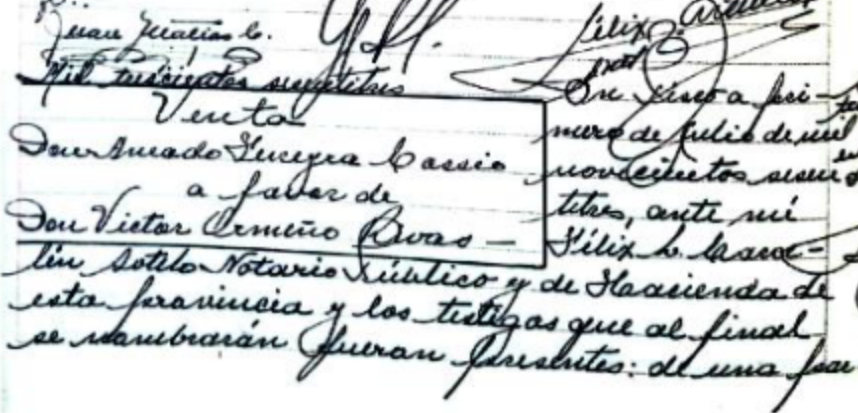 Juan Macias C.
Félix
Mil trescientos sesentitres
Venta
Don Amado Lucegra Cassio
a favor de
Don Victor Ormeño Rivas —
En Pisco a pri-
mero de Julio de mil
novecientos sesen
titres, ante mí
Félix L.
lin Sotelo Notario Público y de Hacienda de
esta provincia y los testigos que al final
se nombrarán fueron presentes: de una par